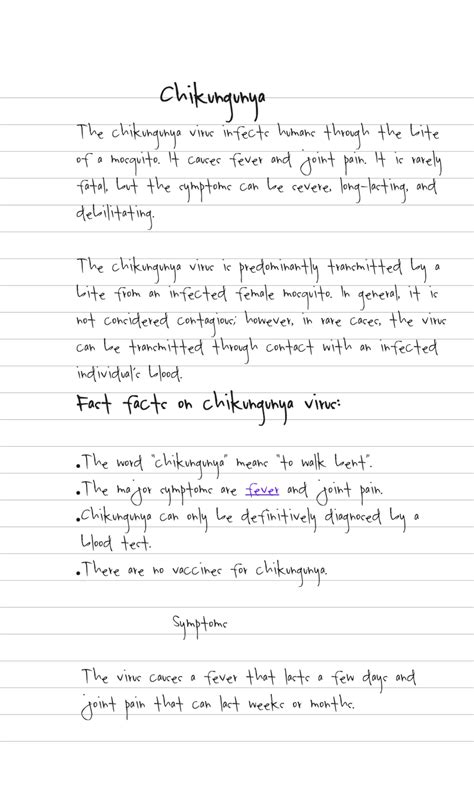 Chikungunya
The chikungunya virus infects humans through the bite
of a mosquito. It causes fever and joint pain. It is rarely
fatal, but the symptoms can be severe, long-lasting, and
debilitating.
The chikungunya virus is predominantly transmitted by a
bite from an infected female mosquito. In general, it is
not considered contagious; however, in rare cases, the virus
can be transmitted through contact with an infected
individual's blood.
Fast facts on chikungunya virus:
.The word "chikungunya" means "to walk bent".
.The major symptoms are fever and joint pain.
.Chikungunya can only be definitively diagnosed by a
blood test.
.There are no vaccines for chikungunya.
Symptoms
The virus causes a fever that lasts a few days and
joint pain that can last weeks or months.